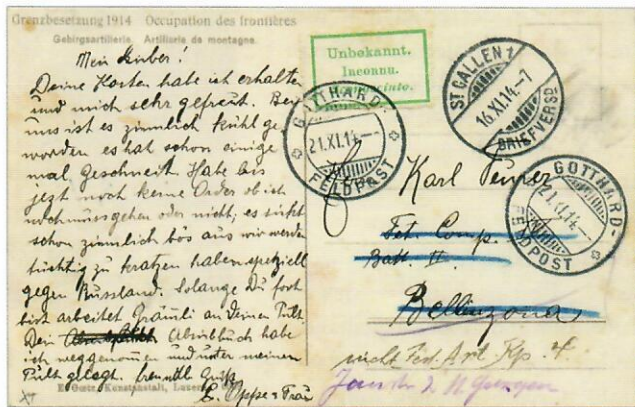 Grenzbesetzung 1914 Occupation des frontières
Gebirgsartillerie. Artillerie de montagne.
Mein Lieber!
Deine Karten habe ich erhalten
und mich sehr gefreut. Bei
uns ist es ziemlich kühl ge
worden es hat schon einige
mal geschneit. Habe bis
jezt noch keine Order ob ich
noch muss gehen oder nicht, es sieht
schon ziemlich bös aus wir werden
tüchtig zu kratzen haben speziell
gegen Russland. Solange Du fort
bist arbeitet an Deinem Pult.
Dein habe
ich weggenommen und unter meinen
Pult gelegt. freundl. Grüß
E. Goetz, Kunstanstalt, Luzern
Unbekannt.
Inconnu.
GOTTHARD-
21.XI.14.
FELDPOST
ST GALLEN 1
16.XI.14.-7
BRIEFVERSD.
GOTTHARD-
21.XI.14.
FELDPOST
Karl
Fet. Comp.
Batt. II.
Bellinzona
nicht Fest. Art. Kp. 4.